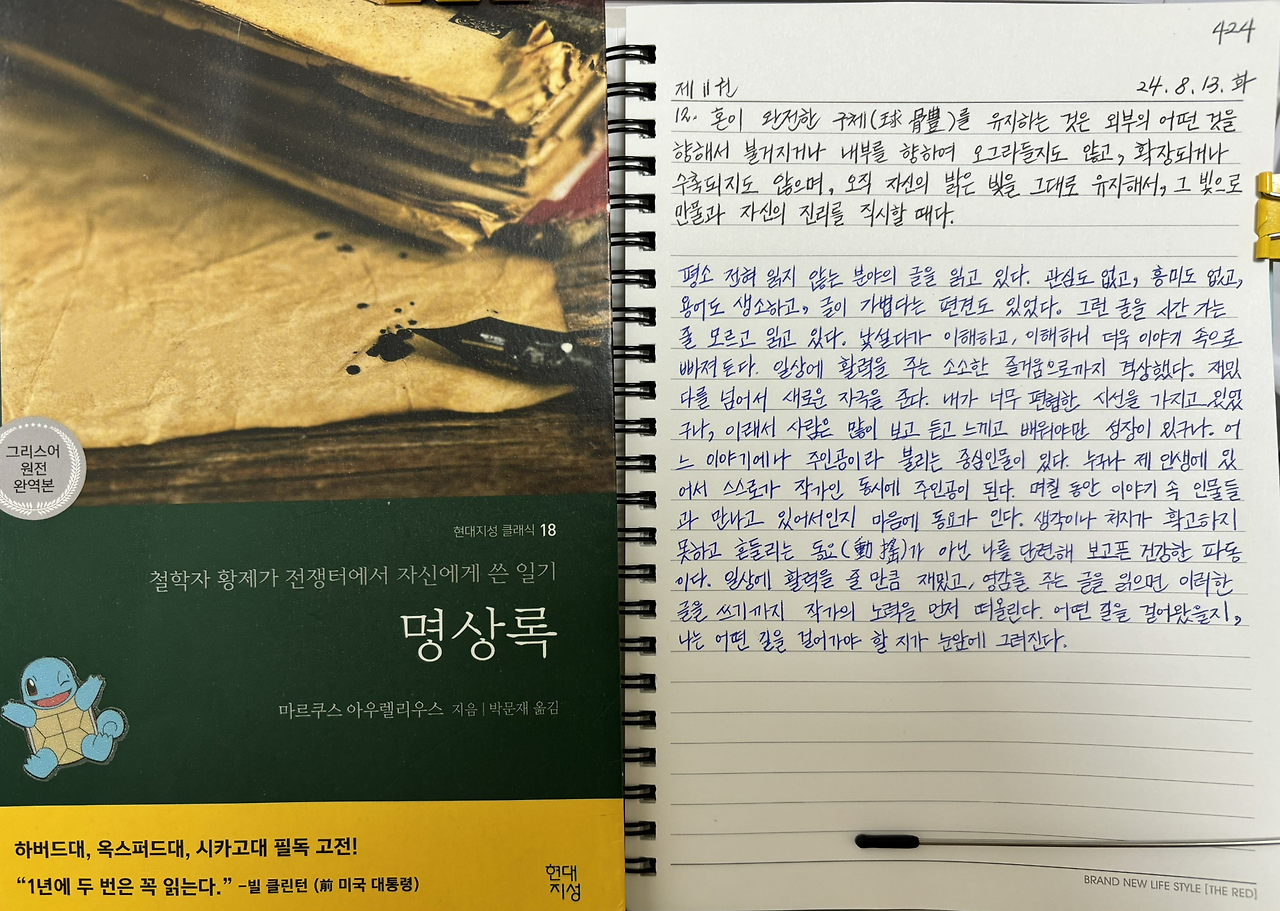 그리스어
원전
완역본
현대지성 클래식 18
철학자 황제가 전쟁터에서 자신에게 쓴 일기
명상록
마르쿠스 아우렐리우스 지음 | 박문재 옮김
하버드대, 옥스퍼드대, 시카고대 필독 고전!
“1년에 두 번은 꼭 읽는다.” -빌 클린턴 (前 미국 대통령)
현대
지성
424
제 11권 24. 8. 13. 화
12. 혼이 완전한 구체(球體)를 유지하는 것은 외부의 어떤 것을
향해서 불거지거나 내부를 향하여 오그라들지도 않고, 확장되거나
수축되지도 않으며, 오직 자신의 밝은 빛을 그대로 유지해서, 그 빛으로
만물과 자신의 진리를 직시할 때다.
평소 전혀 읽지 않는 분야의 글을 읽고 있다. 관심도 없고, 흥미도 없고,
용어도 생소하고, 글이 가볍다는 편견도 있었다. 그런 글을 시간 가는
줄 모르고 읽고 있다. 낯설다가 이해하고, 이해하니 더욱 이야기 속으로
빠져든다. 일상에 활력을 주는 소소한 즐거움으로까지 격상했다. 재밌
다를 넘어서 새로운 자극을 준다. 내가 너무 편협한 시선을 가지고 있었
구나, 이래서 사람은 많이 보고 듣고 느끼고 배워야만 성장이 있구나. 어
느 이야기에나 주인공이라 불리는 중심인물이 있다. 누구나 제 인생에 있
어서 스스로가 작가인 동시에 주인공이 된다. 며칠 동안 이야기 속 인물들
과 만나고 있어서인지 마음에 동요가 인다. 생각이나 처지가 확고하지
못하고 흔들리는 동요(動搖)가 아닌 나를 단련해 보고픈 건강한 파동
이다. 일상에 활력을 줄 만큼 재밌고, 영감을 주는 글을 읽으면 이러한
글을 쓰기까지 작가의 노력을 먼저 떠올린다. 어떤 길을 걸어왔을지,
나는 어떤 길을 걸어가야 할 지가 눈앞에 그려진다.
BRAND NEW LIFE STYLE [THE RED]